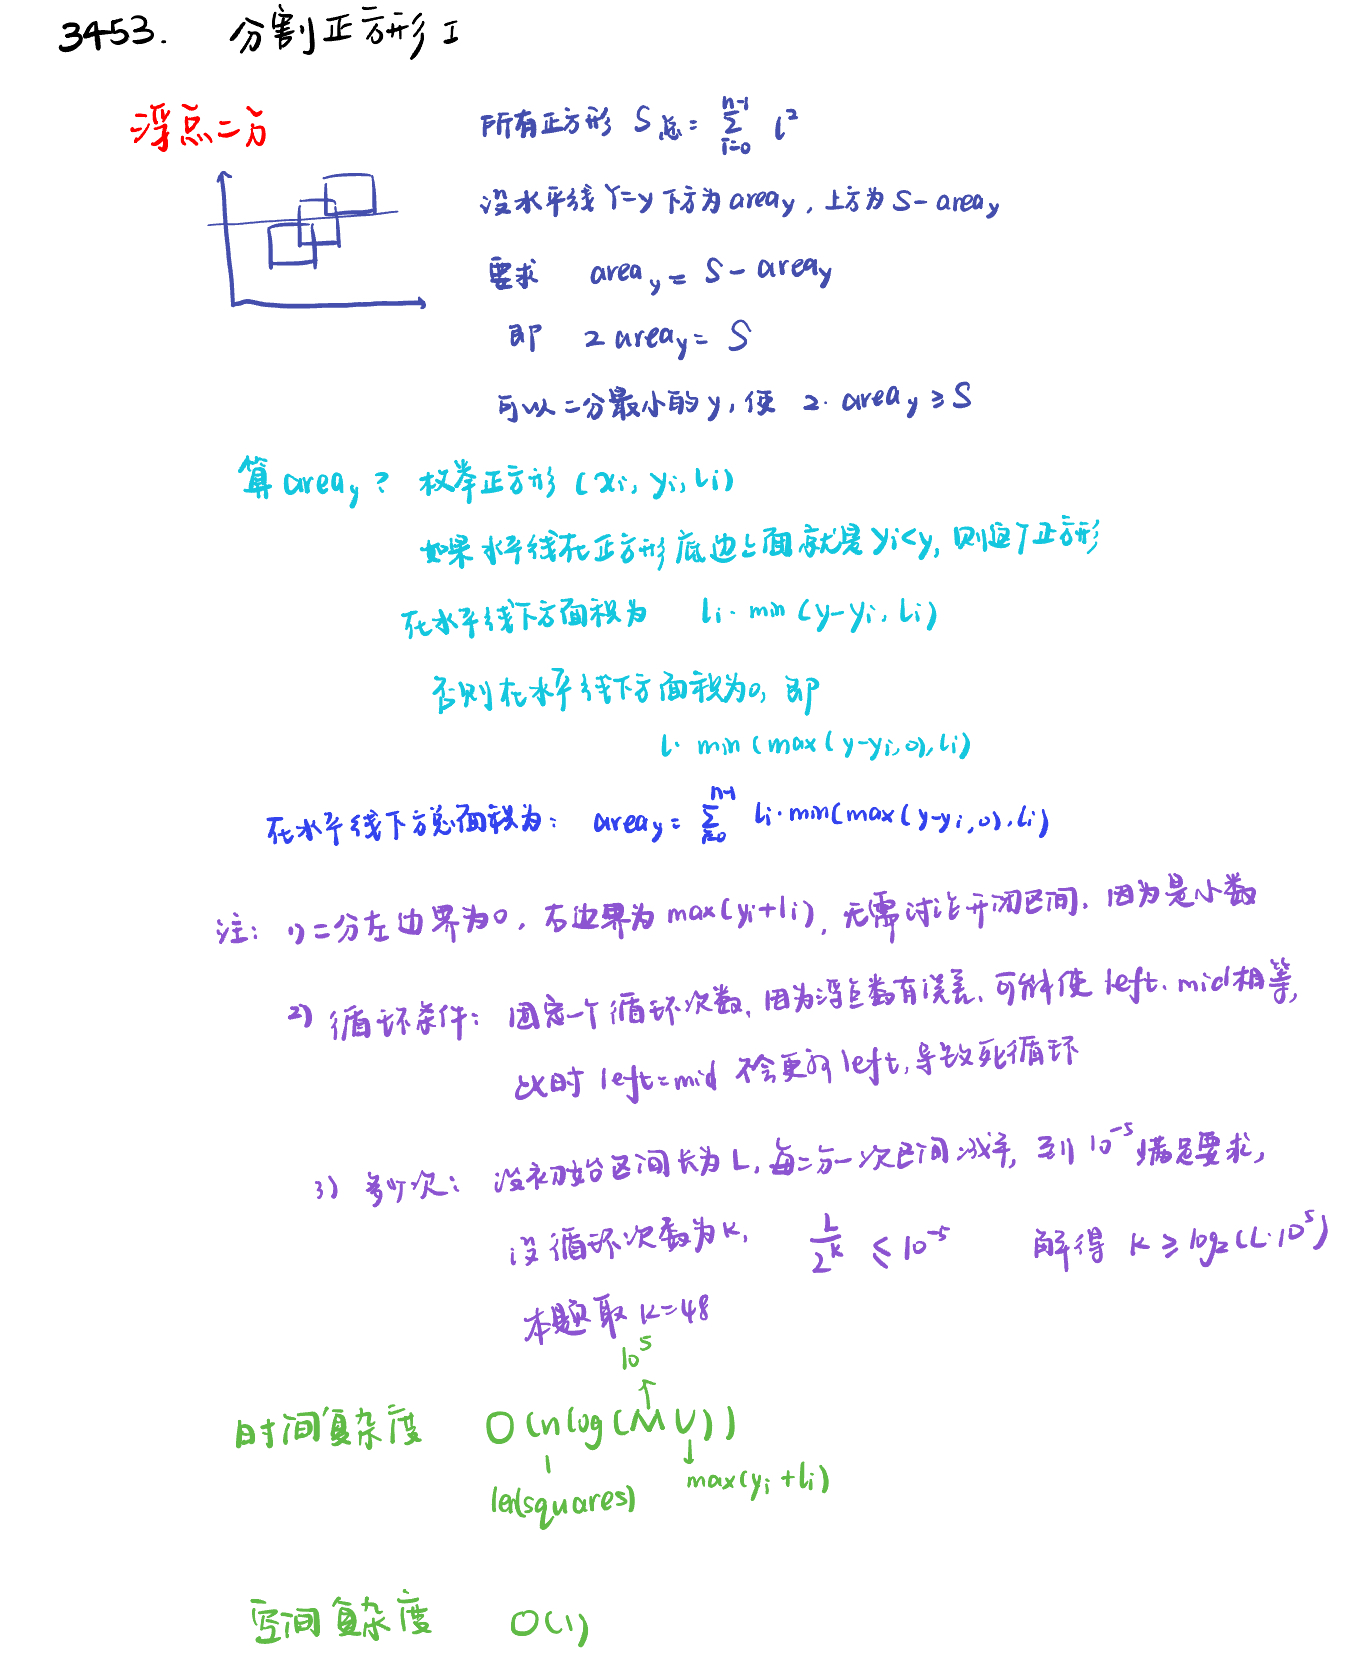 3453. 分割正方形 I
浮点二分
所有正方形 S总 = ∑_{i=0}^{n-1} l²
设水平线 Y=y 下方为 area_y, 上方为 S - area_y
要求 area_y = S - area_y
即 2 area_y = S
可以二分最小的 y, 使 2· area_y ≥ S
算 area_y ? 枚举正方形 (xi, yi, li)
如果水平线在正方形底边上面就是 yi<y, 则这个正方形
在水平线下方面积为 li · min (y-yi, li)
否则在水平线下方面积为0, 即
l· min (max(y-yi,0), li)
在水平线下方总面积为: area_y = ∑_{i=0}^{n-1} li·min(max(y-yi,0), li)
注: 1) 二分左边界为0, 右边界为 max(yi+li), 无需讨论开闭区间, 因为是小数
2) 循环条件: 固定一个循环次数, 因为浮点数有误差, 可能使 left、mid相等,
此时 left=mid 不会更新 left, 导致死循环
3) 多少次: 设初始区间长为 L, 每二分一次区间减半, 到 10^{-5} 满足要求,
设循环次数为 K, L/2^K ≤ 10^{-5} 解得 K ≥ log₂(L·10^5)
本题取 K=48
10^5
时间复杂度 O(nlog(MU))
len(squares) max(yi+li)
空间复杂度 O(1)